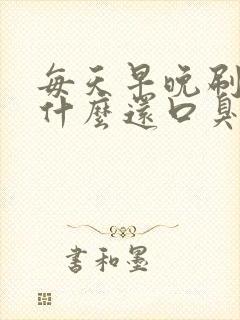 每天早晚刷
什麼還口臭
書和墨